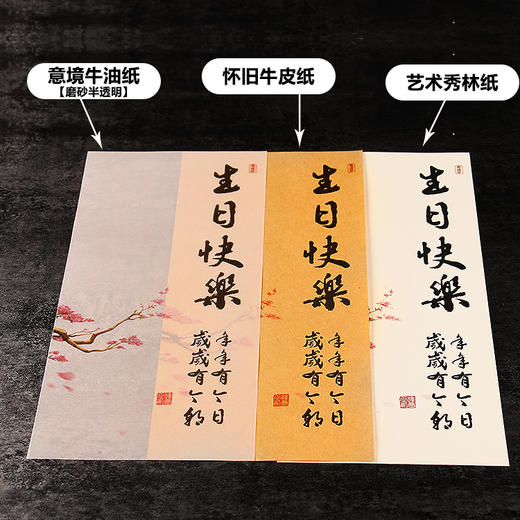 意境牛油纸
【磨砂半透明】
怀旧牛皮纸
艺术秀林纸
生日快樂
年年有今日
歲歲有今朝
生日快樂
年年有今日
歲歲有今朝
生日快樂
年年有今日
歲歲有今朝